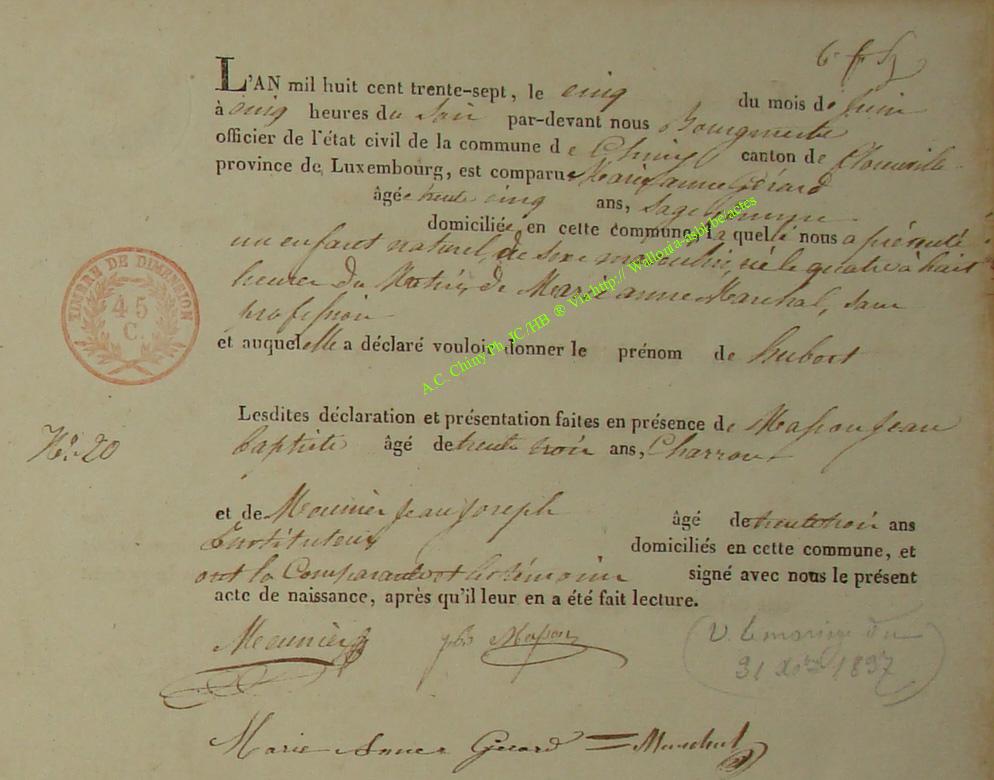 L'AN mil huit cent trente-sept, le cinq du mois de Juin
à cinq heures du Soir par-devant nous Bourgmestre
officier de l'état civil de la commune de Chiny canton de
province de Luxembourg, est comparue Marie Janne Gérard
âgée trente cinq ans, Sage femme
domiciliée en cette commune, La quelle nous a présenté
un enfant naturel, de sexe masculin, né le quatre à huit
heures du Matin, de Marie anne Maréchal, sans
profession
et auquel elle a déclaré vouloir donner le prénom de hubert
TIMBRE DE DIMENSION
45
C.
A.C. Chiny Ph. JC/HB ® Via http:// Wallonia-asbl.be/actes
Lesdites déclaration et présentation faites en présence de Masson Jean
No. 20
baptiste âgé de trente trois ans, Charron
et de Meunier Jean Joseph âgé de trente trois ans
Instituteur domiciliés en cette commune, et
ont la Comparante et les témoins signé avec nous le présent
acte de naissance, après qu'il leur en a été fait lecture.
Meunier Masson
V. le mariage du
31 Xbre 1837
Marie Anne Gerard = Marechal